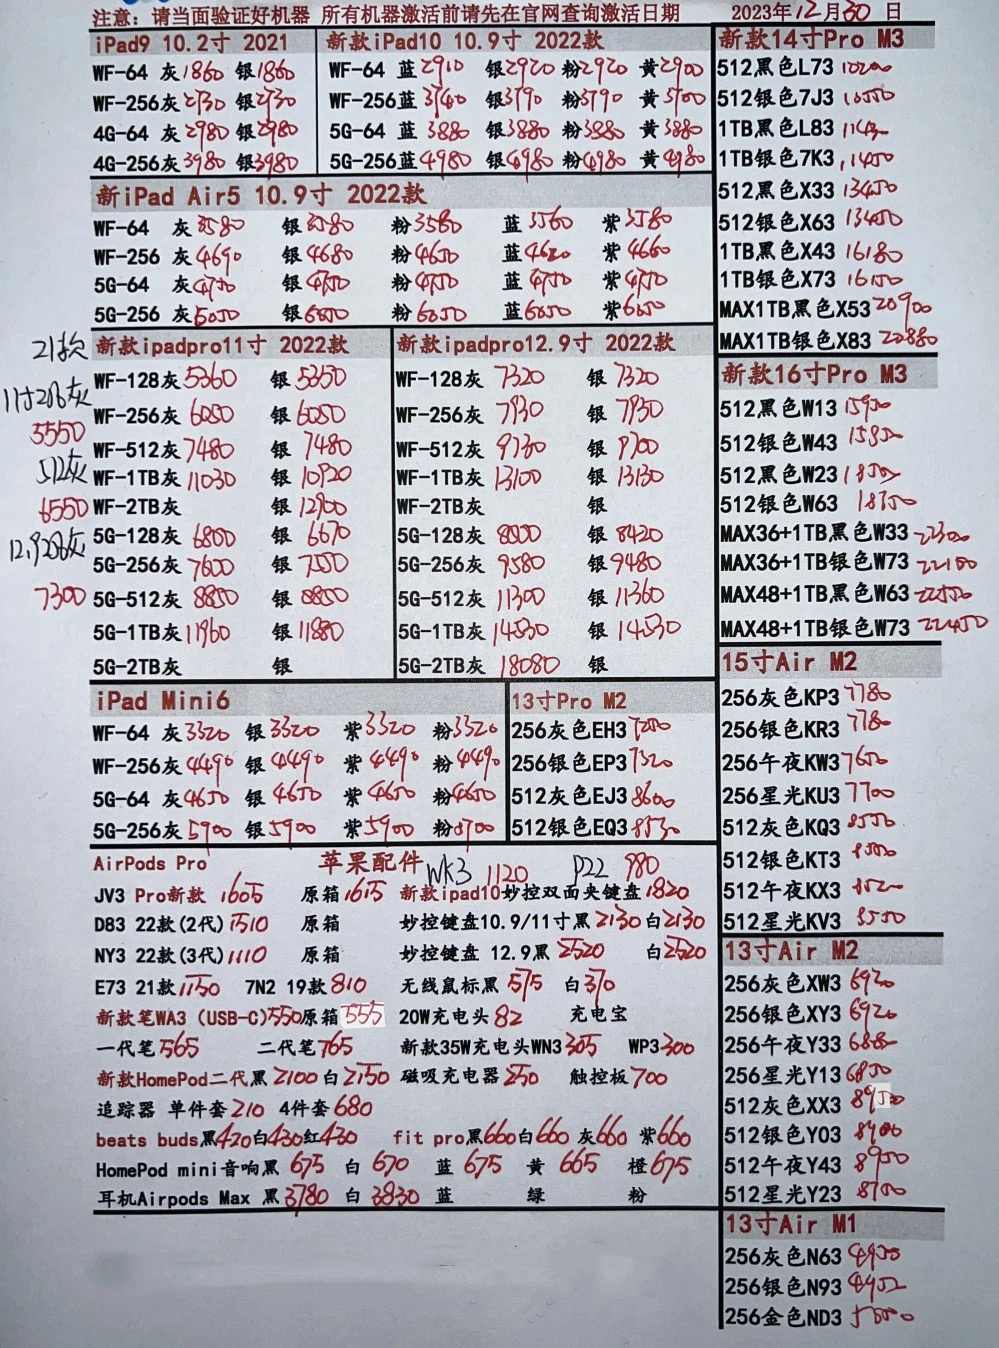 注意：请当面验证好机器 所有机器激活前请先在官网查询激活日期 2023年12月30日
iPad9 10.2寸 2021
WF-64 灰1860 银1860
WF-256灰2730 银2730
4G-64 灰2980 银2980
4G-256灰3980 银3980
新款iPad10 10.9寸 2022款
WF-64 蓝2910 银2920 粉2920 黄2900
WF-256蓝3740 银3790 粉3790 黄3700
5G-64 蓝3880 银3880 粉3880 黄3880
5G-256蓝4980 银4980 粉4980 黄4980
新iPad Air5 10.9寸 2022款
WF-64 灰3580 银3580 粉3580 蓝3560 紫3580
WF-256 灰4690 银4680 粉4650 蓝4620 紫4660
5G-64 灰4750 银4750 粉4750 蓝4750 紫4750
5G-256 灰6050 银6050 粉6050 蓝6050 紫6050
21款
11寸 灰
5550
512灰
6550
12.9 灰
7300
新款ipadpro11寸 2022款
WF-128灰5360 银5350
WF-256灰6050 银6050
WF-512灰7480 银7480
WF-1TB灰11030 银10920
WF-2TB灰 银12900
5G-128灰6800 银6670
5G-256灰7600 银7550
5G-512灰8850 银8850
5G-1TB灰11960 银11880
5G-2TB灰 银
新款ipadpro12.9寸 2022款
WF-128灰7320 银7320
WF-256灰7930 银7930
WF-512灰9730 银9700
WF-1TB灰13100 银13130
WF-2TB灰 银
5G-128灰8500 银8420
5G-256灰9580 银9480
5G-512灰11300 银11360
5G-1TB灰14530 银14530
5G-2TB灰18080 银
iPad Mini6
WF-64 灰3320 银3320 紫3320 粉3320
WF-256灰4490 银4490 紫4490 粉4490
5G-64 灰4650 银4650 紫4650 粉4650
5G-256灰5900 银5900 紫5900 粉5900
13寸Pro M2
256灰色EH3 7200
256银色EP3 7320
512灰色EJ3 8600
512银色EQ3 8530
AirPods Pro 苹果配件 WK3 1120 P22 980
JV3 Pro新款 1605 原箱1615 新款ipad10妙控双面夹键盘1820
D83 22款(2代)1510 原箱 妙控键盘10.9/11寸黑2130 白2130
NY3 22款(3代)1110 原箱 妙控键盘 12.9黑2520 白2520
E73 21款1150 7N2 19款810 无线鼠标黑575 白370
新款笔WA3 (USB-C)550原箱555 20W充电头82 充电宝
一代笔565 二代笔765 新款35W充电头WN3 305 WP3 300
新款HomePod二代黑2100 白2150 磁吸充电器250 触控板700
追踪器 单件套210 4件套680
beats buds黑420白430红430 fit pro黑660白660 灰660 紫660
HomePod mini音响黑675 白670 蓝675 黄665 橙675
耳机Airpods Max 黑3780 白3830 蓝 绿 粉
新款14寸Pro M3
512黑色L73 10200
512银色7J3 10550
1TB黑色L83
1TB银色7K3 11450
512黑色X33 13450
512银色X63 13450
1TB黑色X43 16180
1TB银色X73 16150
MAX1TB黑色X53 20900
MAX1TB银色X83 20880
新款16寸Pro M3
512黑色W13 15950
512银色W43 15850
512黑色W23 18550
512银色W63 18750
MAX36+1TB黑色W33 22300
MAX36+1TB银色W73 22100
MAX48+1TB黑色W63 22550
MAX48+1TB银色W73 22450
15寸Air M2
256灰色KP3 7780
256银色KR3 7780
256午夜KW3 7650
256星光KU3 7700
512灰色KQ3 8550
512银色KT3 8500
512午夜KX3 8520
512星光KV3 8550
13寸Air M2
256灰色XW3 6920
256银色XY3 6920
256午夜Y33 6880
256星光Y13 6850
512灰色XX3 8950
512银色Y03 8900
512午夜Y43 8950
512星光Y23 8700
13寸Air M1
256灰色N63 4950
256银色N93 4950
256金色ND3 5000